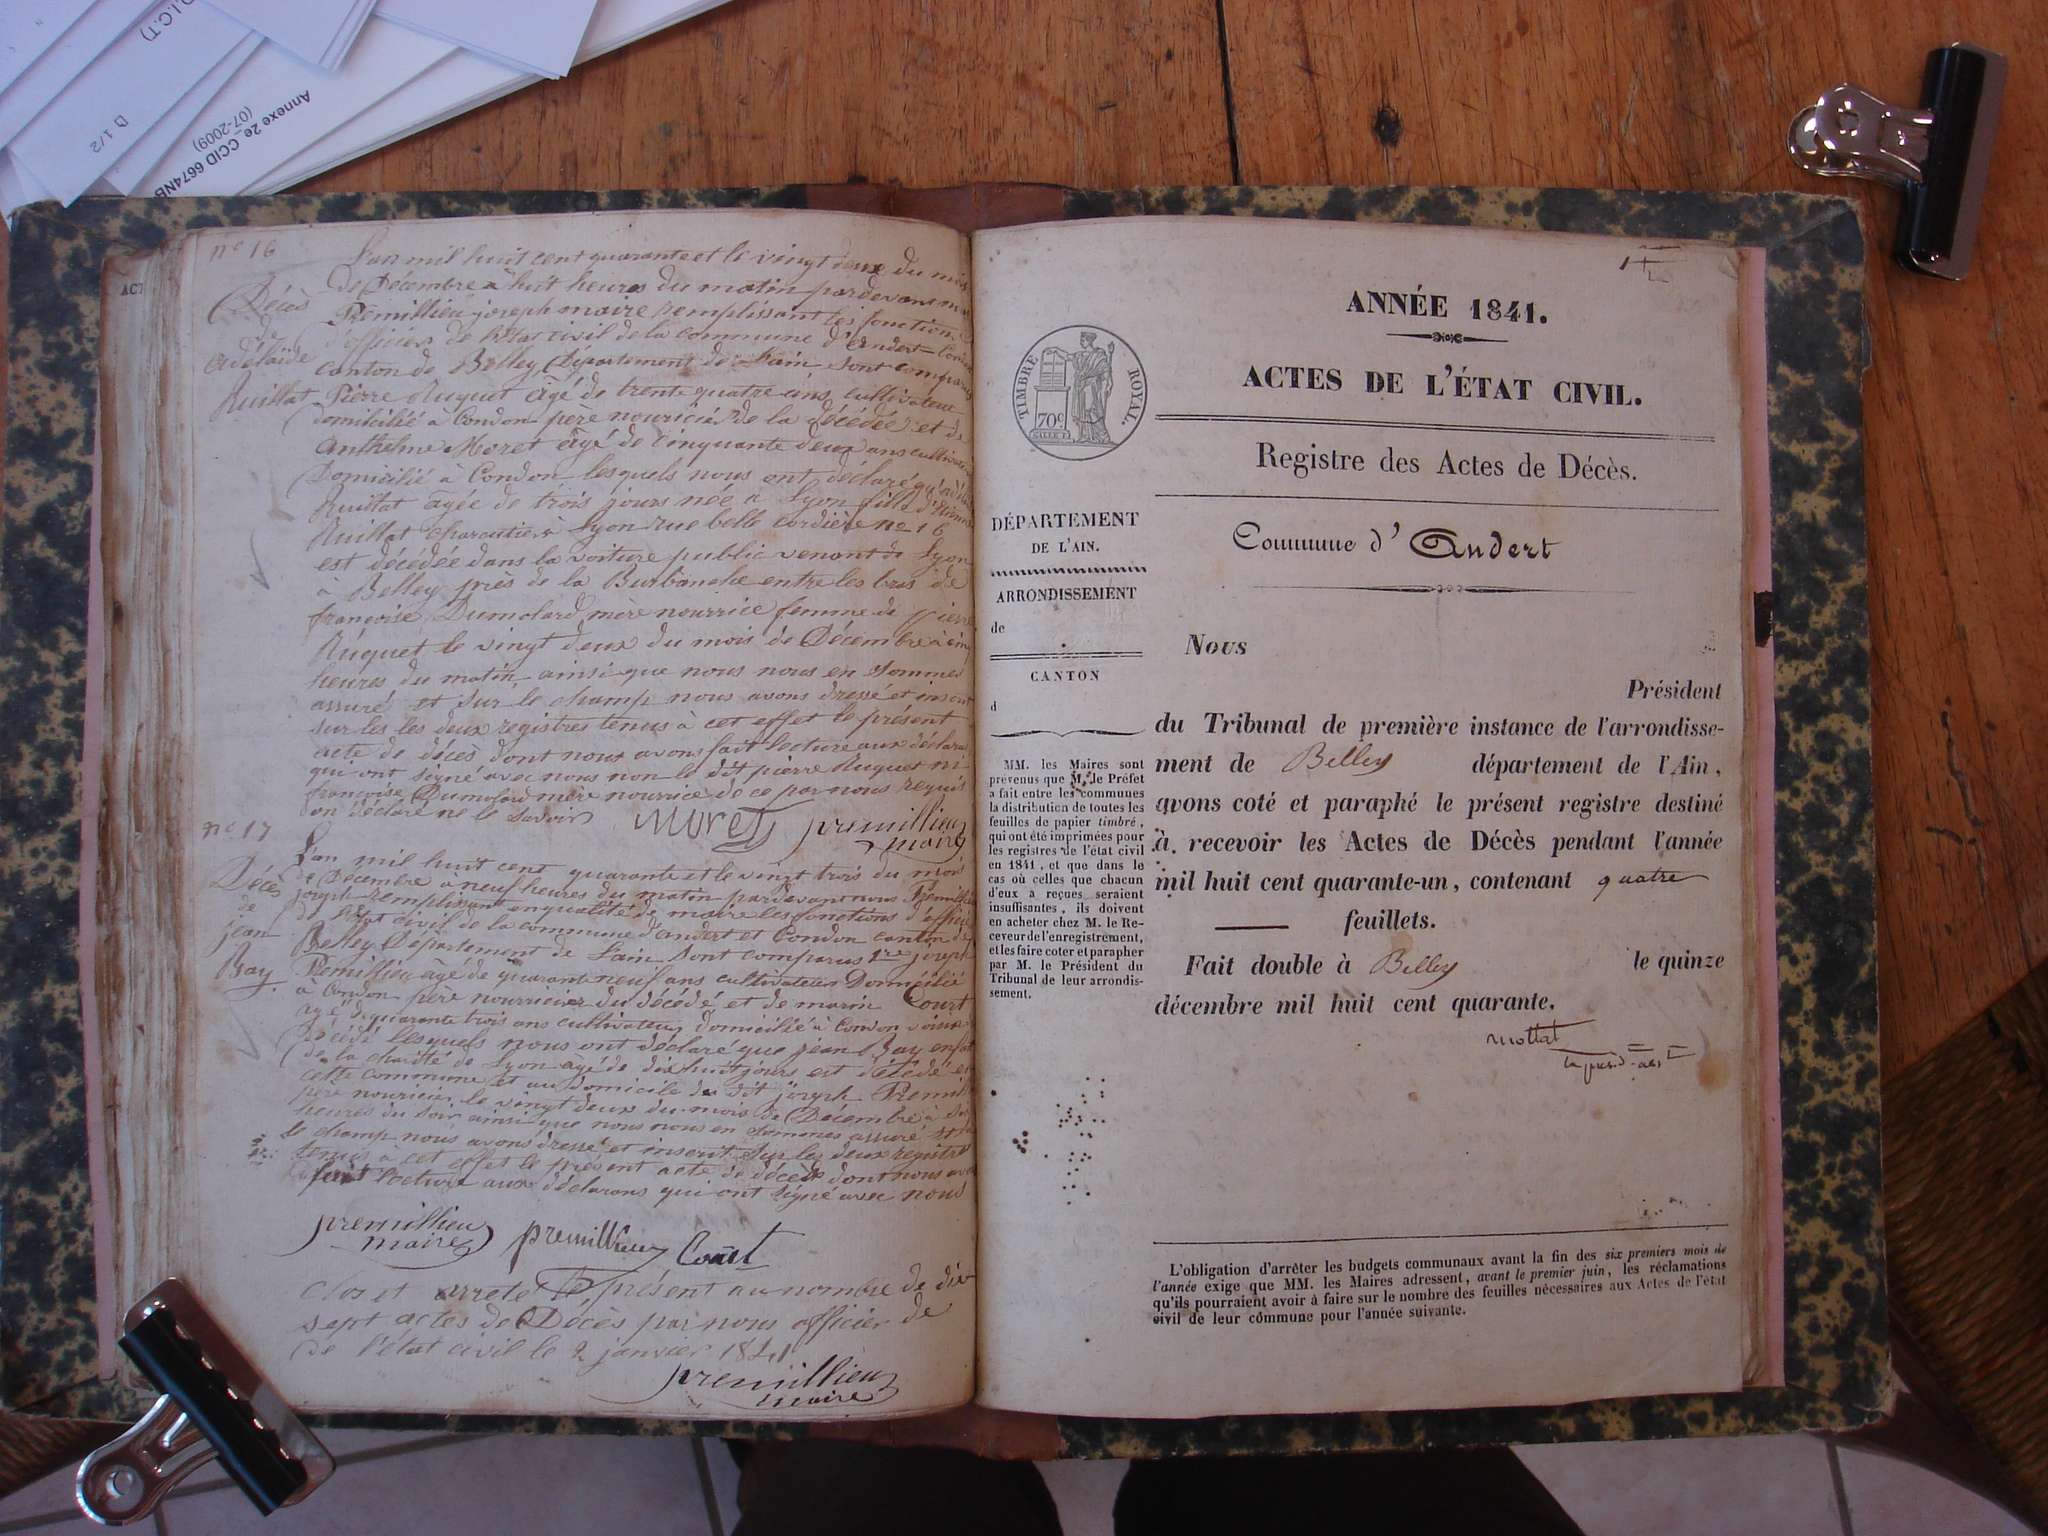 D.I.C.T)
D 1/2
Annexe 2e - CCID 6674NB
(07-2009)
ACT
nº 16
Décès
de
Adélaïde
Ruillat
L'an mil huit cent quarante et le vingt deux du mois
de Décembre à huit heures du matin pardevant nous
Premillieu joseph maire remplissant les fonctions
d'officier de l'état civil de la commune d'Andert-Condon
canton de Belley, Département de l'ain sont comparus
Pierre Ruguet âgé de trente quatre ans, cultivateur
domicilié à Condon père nouricier de la décédée et de
Anthelme Moret âgé de cinquante deux ans cultivateur
Domicilié à Condon lesquels nous ont déclaré qu'adélaïde
Ruillat agée de trois jours née à Lyon fille d'
Ruillat charcutier à Lyon rue belle cordière nº 16
est décédée dans la voiture public venant de Lyon
à Belley près de la Burbanche entre les bras de
françoise Dumolard mère nourrice femme de pierre
Ruguet le vingt deux du mois de Décembre à cinq
heures du matin ainsi que nous nous en sommes
assuré et sur le champ nous avons dressé et inscrit
sur les les deux registres tenus à cet effet le présent
acte de décès dont nous avons fait lecture aux déclarans
qui ont signé avec nous non le dit pierre Ruguet ni
françoise Dumolard mère nourrice de ce par nous requis
on déclaré ne le savoir Moret premillieu
maire
nº 17
Décès
de
jean
Bay
L'an mil huit cent quarante et le vingt trois du mois
de Décembre à neuf heures du matin pardevant nous Premillieu
joseph remplissant en qualité de maire les fonctions d'officier
de l'état civil de la commune d'andert et Condon canton de
Belley Département de l'ain sont comparus 1er joseph
Premillieu âgé de quarante neuf ans cultivateur Domicilié
à Condon père nourricier du décédé et de marin Court
agé de quarante trois ans cultivateur domicilié à Condon voisin
décédé lesquels nous ont déclaré que jean Bay enfant
de la charité de Lyon âgé de dix huit jours est décédé en
cette commune et au domicile du dit joseph Premillieu
père nouricier le vingt deux du mois de Décembre à
heures du soir ainsi que nous nous en sommes assuré et sur
le champ nous avons dressé et inscrit sur les deux registres
tenus à cet effet le présent acte de décès dont nous avons
fait lecture aux déclarans qui ont signé avec nous
premillieu premillieu Court
maire
Clos et arreté le présent au nombre de dix
sept actes de Décès par nous officier de
de l'état civil le 2 janvier 1841
premillieu
maire
ANNÉE 1841.
ACTES DE L'ÉTAT CIVIL.
TIMBRE ROYAL.
70c
Registre des Actes de Décès.
Commune d' Andert
DÉPARTEMENT
DE L'AIN.
ARRONDISSEMENT
de
CANTON
d
MM. les Maires sont
prévenus que M. le Préfet
a fait entre les communes
la distribution de toutes les
feuilles de papier timbré,
qui ont été imprimées pour
les registres de l'état civil
en 1841, et que dans le
cas où celles que chacun
d'eux a reçues seraient
insuffisantes, ils doivent
en acheter chez M. le Re-
ceveur de l'enregistrement,
et les faire coter et parapher
par M. le Président du
Tribunal de leur arrondis-
sement.
Nous
Président
du Tribunal de première instance de l'arrondisse-
ment de Belley département de l'Ain,
avons coté et paraphé le présent registre destiné
à recevoir les Actes de Décès pendant l'année
mil huit cent quarante-un, contenant quatre
feuillets.
Fait double à Belley le quinze
décembre mil huit cent quarante.
mottat
L'obligation d'arrêter les budgets communaux avant la fin des six premiers mois de
l'année exige que MM. les Maires adressent, avant le premier juin, les réclamations
qu'ils pourraient avoir à faire sur le nombre des feuilles nécessaires aux Actes de l'état
civil de leur commune pour l'année suivante.